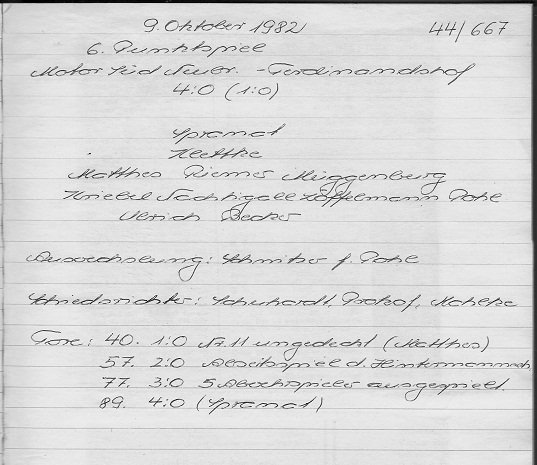 9. Oktober 1982 44/667
6. Punktspiel
Motor Süd Neubr. - Ferdinandshof
4:0 (1:0)
Ypramat
Klettke
Matthes Riemer Müggenburg
Kriebel Nachtigall Löffelmann Pohl
Ulrich Becker
Auswechslung: Schnitzer f. Pohl
Schiedsrichter: Schuhardt, Prohof, Mahlke
Tore: 40. 1:0 Nr. 11 ungedeckt (Matthes)
57. 2:0 Abseitsspiel d. Hintermannsch.
77. 3:0 5 Abwehrspieler ausgespielt
89. 4:0 (Ypramat)